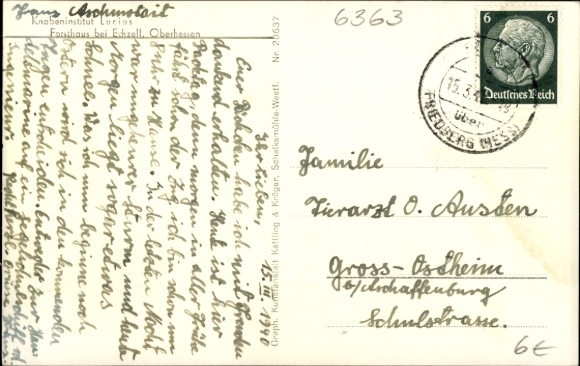 Franz Aschmoteit
Knabeninstitut Lucius
Forsthaus bei Echzell, Oberhessen
6363
6 6
Deutsches Reich
15.3.4
über
FRIEDBERG (HESS)
15. III. 1940
Ihr Lieben,
Euer Päckchen habe ich mit Freuden
dankend erhalten. Heute ist hier
Packtag, denn morgen in aller Frühe
fährt schon der Zug, ich bin schon um
8 Uhr zu Hause. In der letzten Nacht
war ungeheurer Sturm und heute
morgen liegt sogar etwas
Schnee. Was ich nun beginne nach
Ostern, wird sich in den kommenden
Tagen entscheiden. Entweder zur
auf ein
Ingenieur.
Nr. 28637
Graph. Kunstanstalt Kettling & Krüger, Schalksmühle-Westf.
Familie
Tierarzt O. Austen
Gross-Ostheim
b/Aschaffenburg
Schulstrasse.
6€